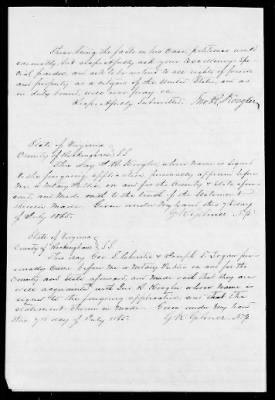 These being the facts in his case, petitioner would
earnestly but respectfully ask your Excellency's spe
cial pardon and ask to be restored to all rights of person
and property as a citizen of the United States, and as
in duty bound will ever pray &c
Respectfully Submitted. Jno H.
State of Virginia
County of Rockingham SS.
This day J. H. whose name is signed
to the foregoing application personally appeared before
me a Notary Public in and for the County & State afore
said and made oath to the truth of the statement
therein made. Given under my hand this 7th day
of July 1865.
N.P.
State of Virginia
County of Rockingham SS.
This day Geo & Joseph T. Logan per
sonally came before me a Notary Public in and for the
County and State aforesaid, and made oath that they are
well acquainted with Jno H. whose name is
signed to the foregoing application and that the
statement therein is made. Given under my hand
this 7th day of July 1865.
N.P.